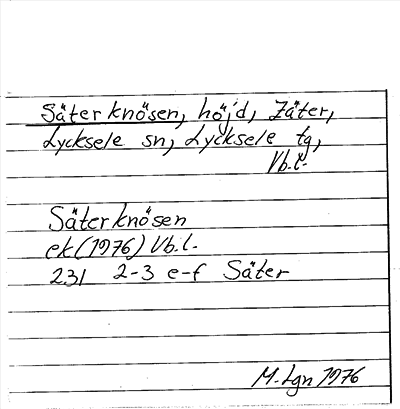 Säterknösen, höjd, Zäter,
Lycksele sn, Lycksele tg,
Vb.l.
Säterknösen
ek(1976) Vb.l.
231 2-3 e-f Säter
M. Lgn 1976